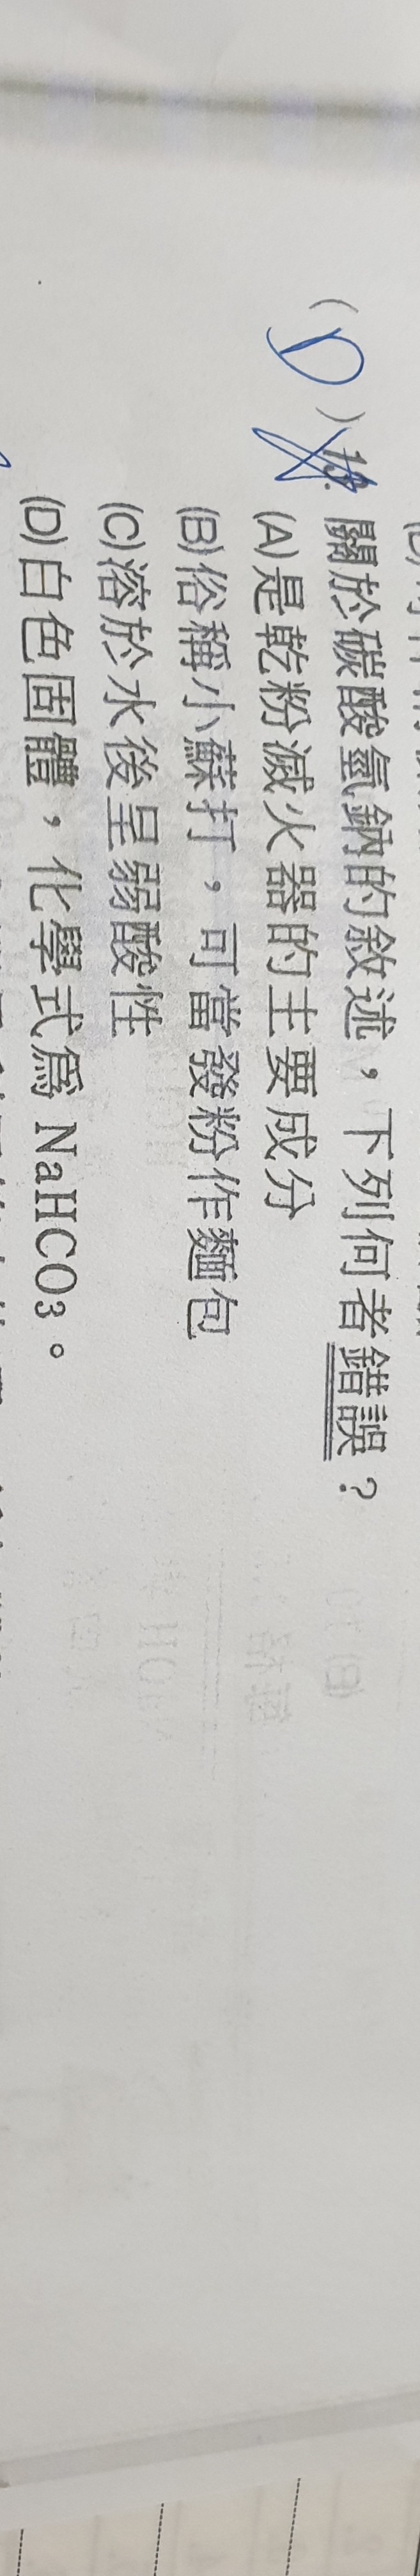 (D) 13. 關於碳酸氫鈉的敘述，下列何者錯誤？
(A)是乾粉滅火器的主要成分
(B)俗稱小蘇打，可當發粉作麵包
(C)溶於水後呈弱酸性
(D)白色固體，化學式為 NaHCO₃。